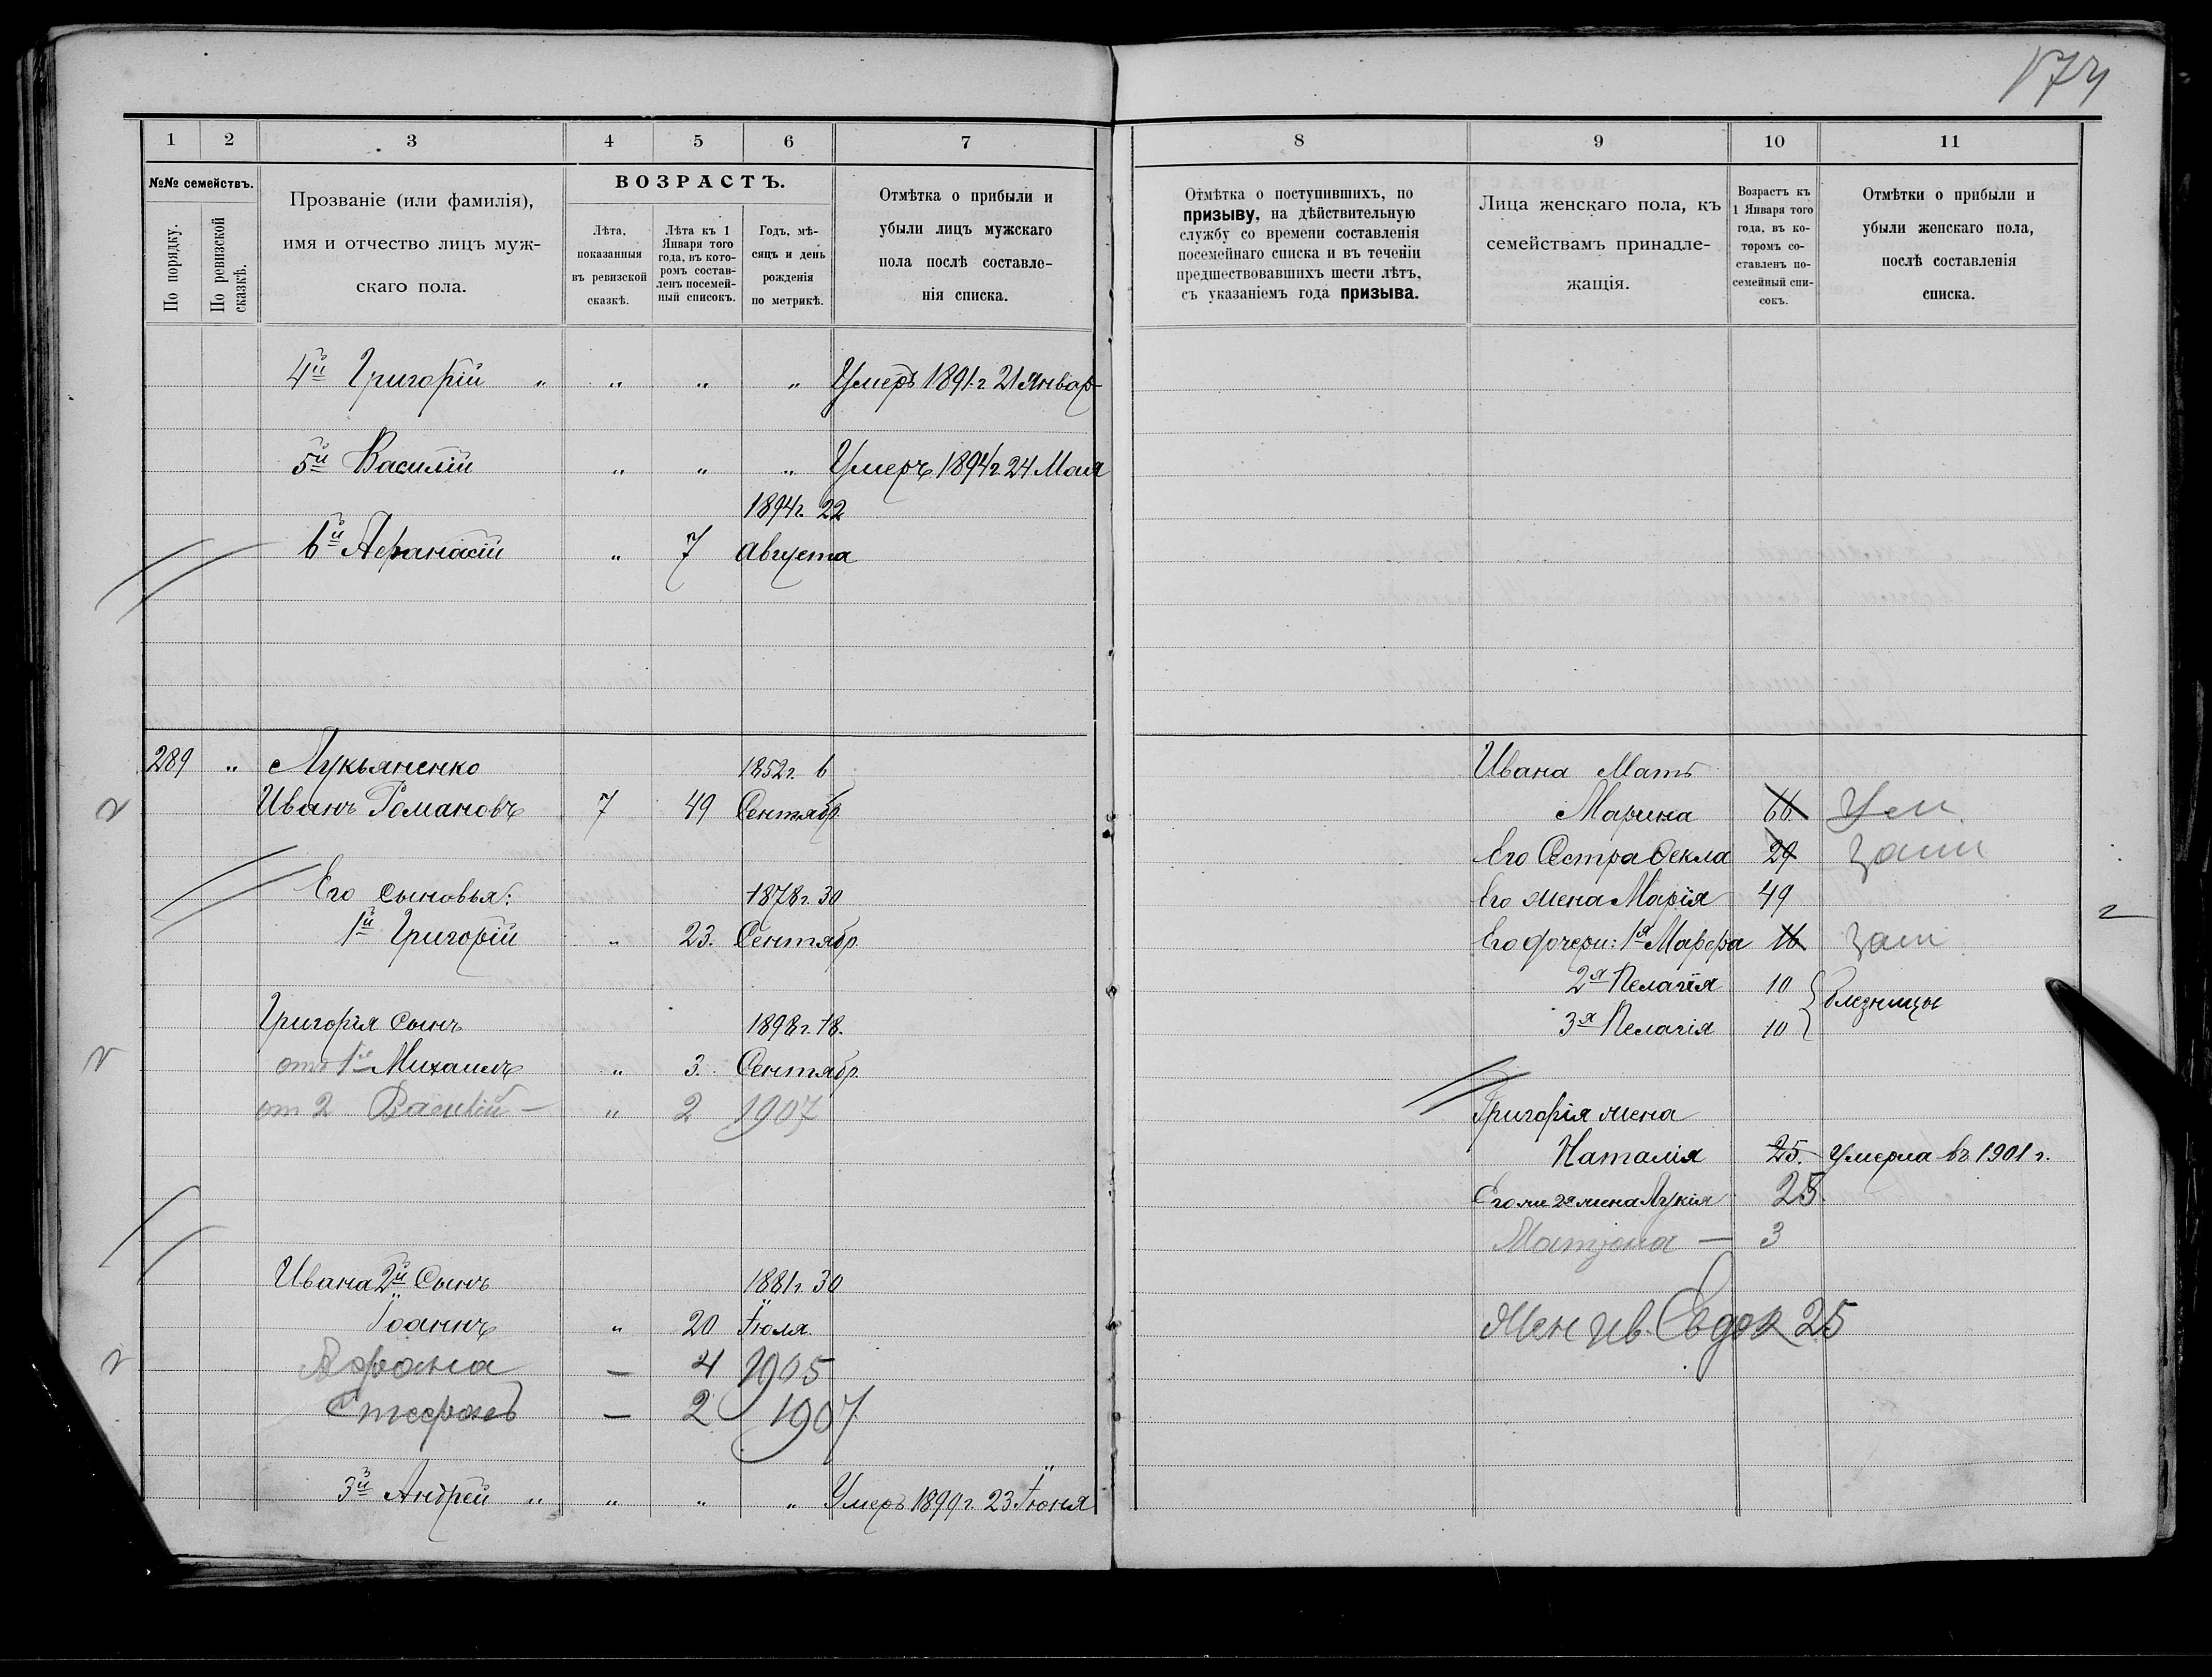 174
1 2 3 4 5 6 7
№№ семействъ.
По порядку.
По ревизской сказкѣ.
Прозваніе (или фамилія),
имя и отчество лицъ муж-
скаго пола.
ВОЗРАСТЪ.
Лѣта,
показанныя
въ ревизской
сказкѣ.
Лѣта къ 1
Января того
года, въ кото-
ромъ состав-
ленъ посемей-
ный списокъ.
Годъ, мѣ-
сяцъ и день
рожденія
по метрикѣ.
Отмѣтка о прибыли и
убыли лицъ мужскаго
пола послѣ составле-
нія списка.
4й Григорій " " " " Умеръ 1891 г. 21 Январ
5й Василій " " " Умеръ 1894 г. 24 Мая
1894 г. 22
6й Афанасій " 7 Августа
289 " Лукьяненко 1852 г. 6
Иванъ Романовъ 7 49 Сентябр.
Его сыновья: 1878 г. 30
1й Григорій " 23. Сентябр.
Григорія сынъ 1898 г. 18.
отъ 1й Михаилъ " 3. Сентябр.
от 2 Василій — " 2 1907
Ивана 2й Сынъ 1881 г. 30
Іоаннъ " 20 Іюля.
Афона — 4 1905
Стефанъ — 2 1907
3й Андрей " " " " Умеръ 1899 г. 23 Іюня
8 9 10 11
Отмѣтка о поступившихъ, по
призыву, на дѣйствительную
службу со времени составленія
посемейнаго списка и въ теченіи
предшествовавшихъ шести лѣтъ,
съ указаніемъ года призыва.
Лица женскаго пола, къ
семействамъ принадле-
жащія.
Возрастъ къ
1 Января того
года, въ ко-
торомъ со-
ставленъ по-
семейный спи-
сокъ.
Отмѣтки о прибыли и
убыли женскаго пола,
послѣ составленія
списка.
Ивана Мать
Марина 66 Ум.
Его Сестра Ѳекла 29 зам
Его жена Марія 49
Его дочери: 1я Марфа 16 зам
2я Пелагія 10
близницы
3я Пелагія 10
Григорія жена
Наталія 25. Умерла въ 1901 г.
Его же 2я жена Лукія 25
Матрона — 3
Жен Ив. Евдок 25